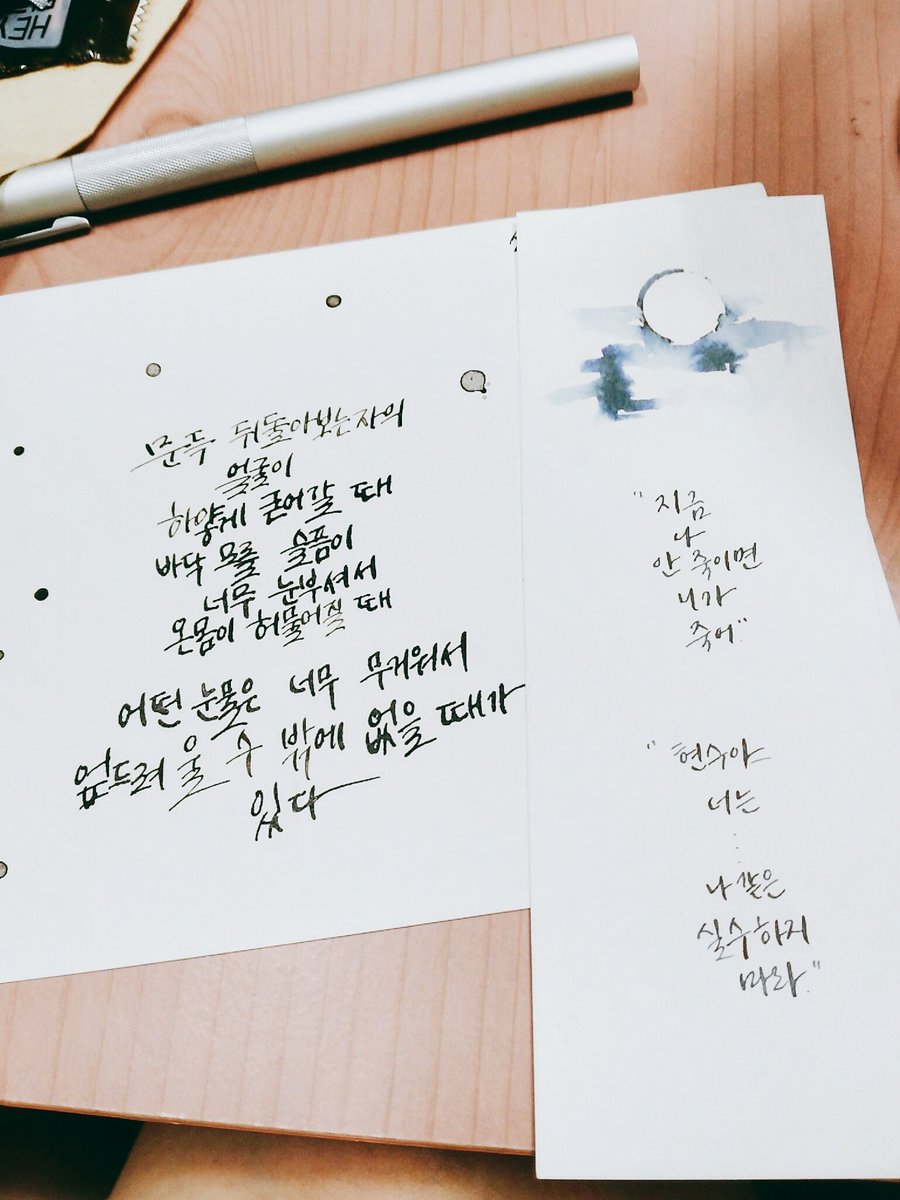 문득 뒤돌아보는자의
얼굴이
하얗게 굳어갈 때
바닥 모를 슬픔이
너무 눈부셔서
온몸이 허물어질 때
어떤 눈물은 너무 무거워서
엎드려 울 수 밖에 없을 때가
있다
"지금
나
안 죽이면
니가
죽어"
"현수야
너는
:
나 같은
실수하지
마라."
HEY